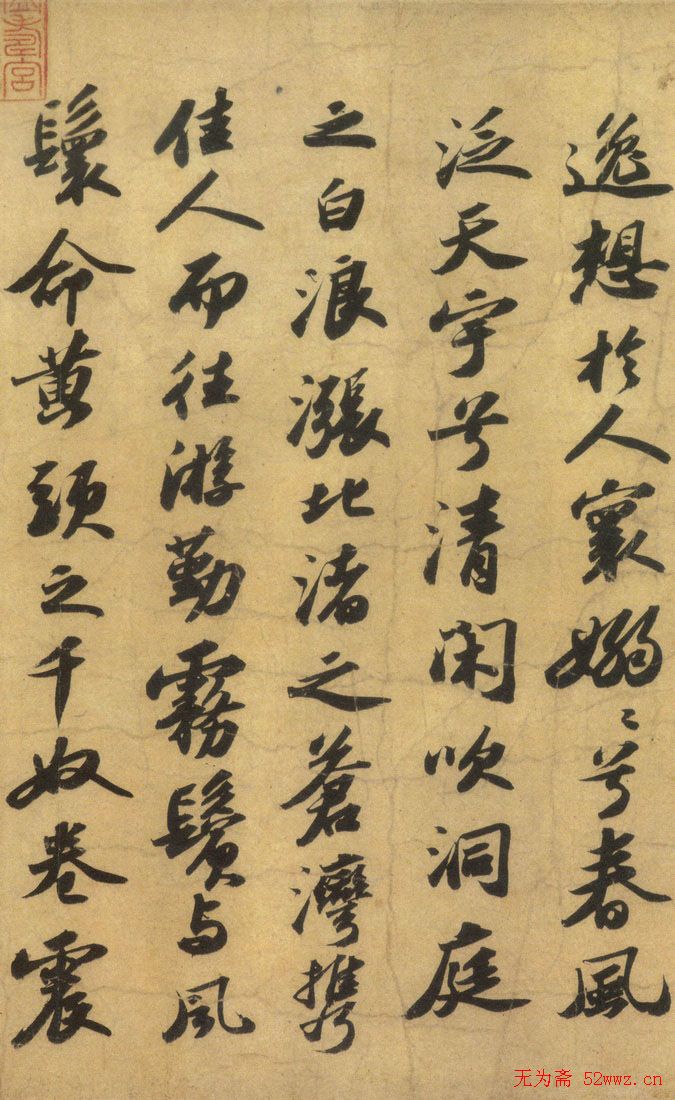 逸想於人寰嫋〻兮春風
泛天宇兮清閑吹洞庭
之白浪漲北渚之蒼灣攜
佳人而往游勤霧鬢与風
鬟命黃頭之千奴卷震
无为斋 52wwz.cn